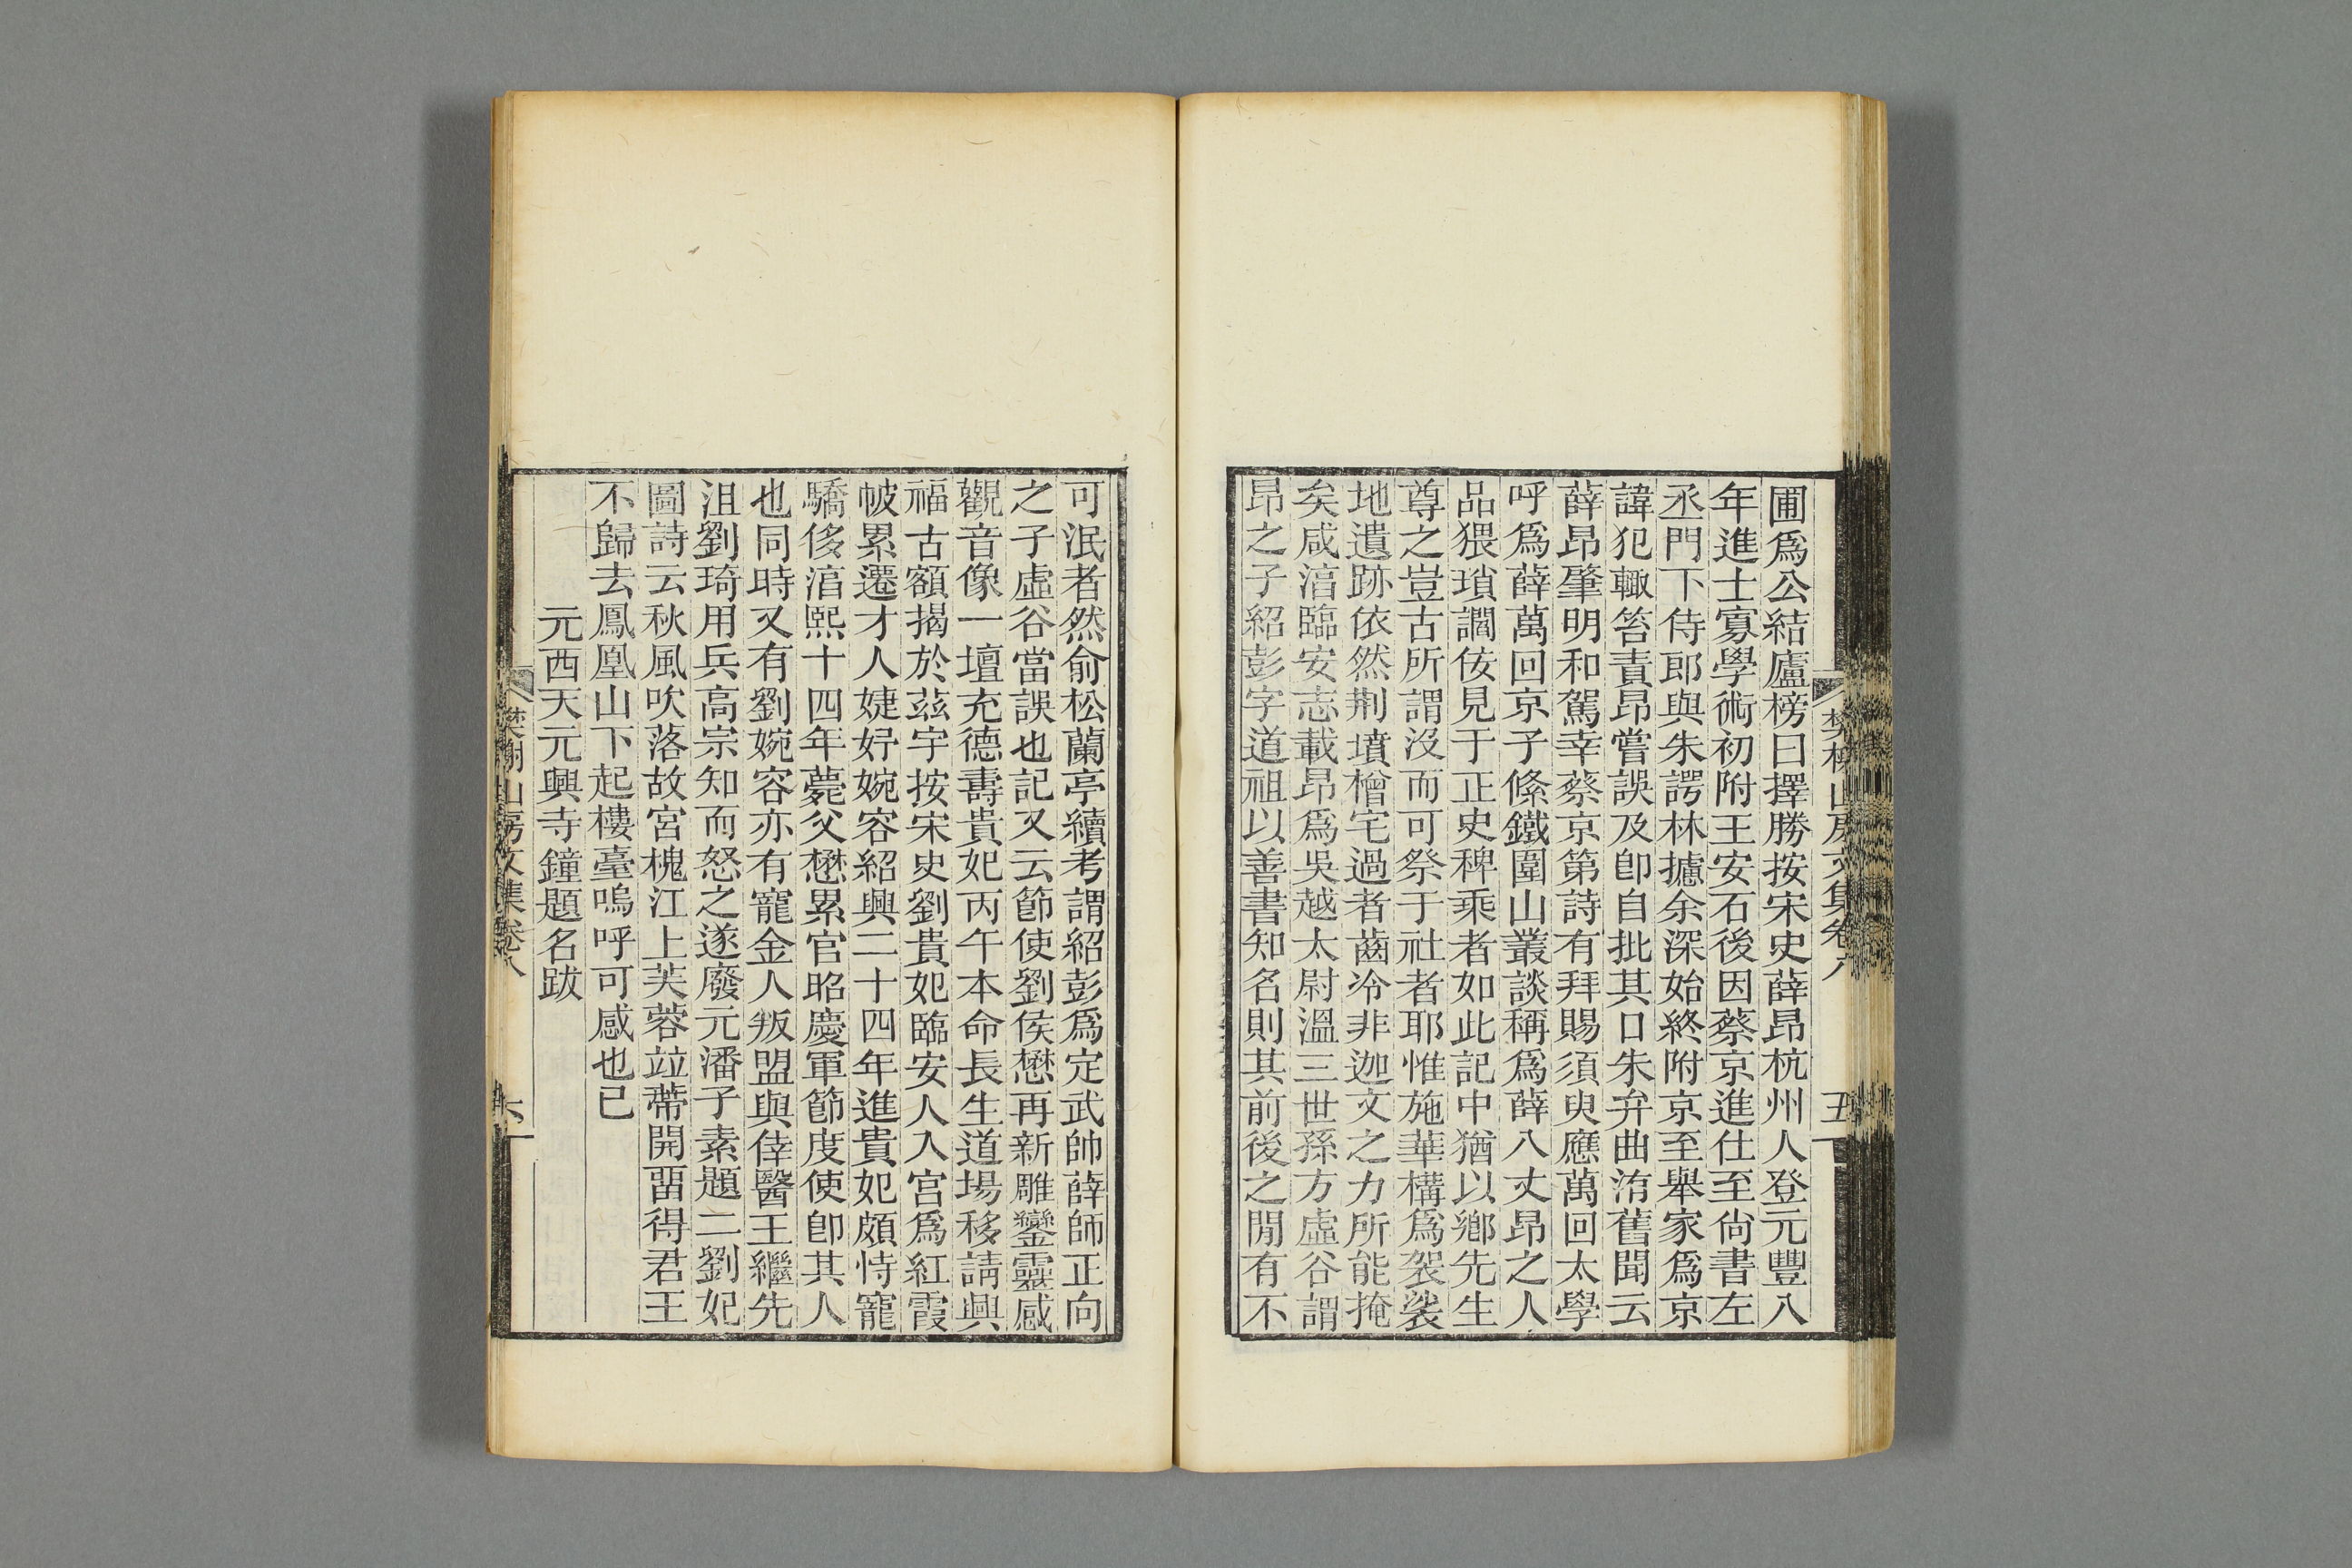 圃爲公結廬榜曰擇勝按宋史薛昂杭州人登元豐八
年進士寡學術初附王安石後因蔡京進仕至尙書左
丞門下侍郎與朱諤林攄余深始終附京至舉家爲京
諱犯輙笞責昂嘗誤及卽自批其口朱弁曲洧舊聞云
薛昂肇明和駕幸蔡京第詩有拜賜須臾應萬回太學
呼爲薛萬回京子絛鐵圍山叢談稱爲薛八丈昂之人
品猥瑣讇佞見于正史稗乘者如此記中猶以鄉先生
尊之豈古所謂沒而可祭于社者耶惟施華構爲袈裟
地遺跡依然荆墳檜宅過者齒冷非迦文之力所能掩
矣咸湻臨安志載昂爲吳越太尉溫三世孫方虛谷謂
昂之子紹彭字道祖以善書知名則其前後之閒有不
樊榭山房文集卷八
五
可泯者然俞松蘭亭續考謂紹彭爲定武帥薛師正向
之子虛谷當誤也記又云節使劉侯懋再新雕鑾靈感
觀音像一壇充德壽貴妃丙午本命長生道場移請興
福古額揭於茲宇按宋史劉貴妃臨安人入宮爲紅霞
帔累遷才人婕妤婉容紹興二十四年進貴妃頗恃寵
驕侈湻熙十四年薨父懋累官昭慶軍節度使卽其人
也同時又有劉婉容亦有寵金人叛盟與倖醫王繼先
沮劉琦用兵高宗知而怒之遂廢元潘子素題二劉妃
圖詩云秋風吹落故宮槐江上芙蓉竝蔕開畱得君王
不歸去鳳凰山下起樓臺嗚呼可感也已
元西天元興寺鐘題名跋
樊榭山房文集卷八
六